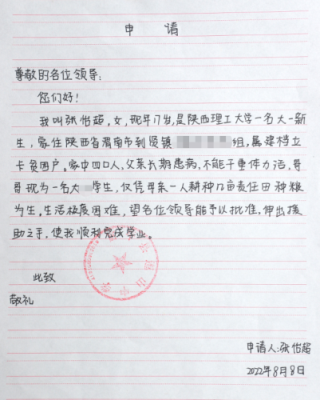 申请
尊敬的各位领导:
您们好!
我叫张怡超,女,现年17岁,是陕西理工大学一名大一新
生,家住陕西省渭南市刘贤镇 组,属建档立
卡贫困户,家中四口人,父亲长期患病,不能干重体力活,哥
哥现为一名大 学生,仅凭母亲一人耕种几亩责任田种粮
为生,生活极度困难,望各位领导能予以批准,伸出援
助之手,使我顺利完成学业。
此致
敬礼
申请人:张怡超
2022年8月8日